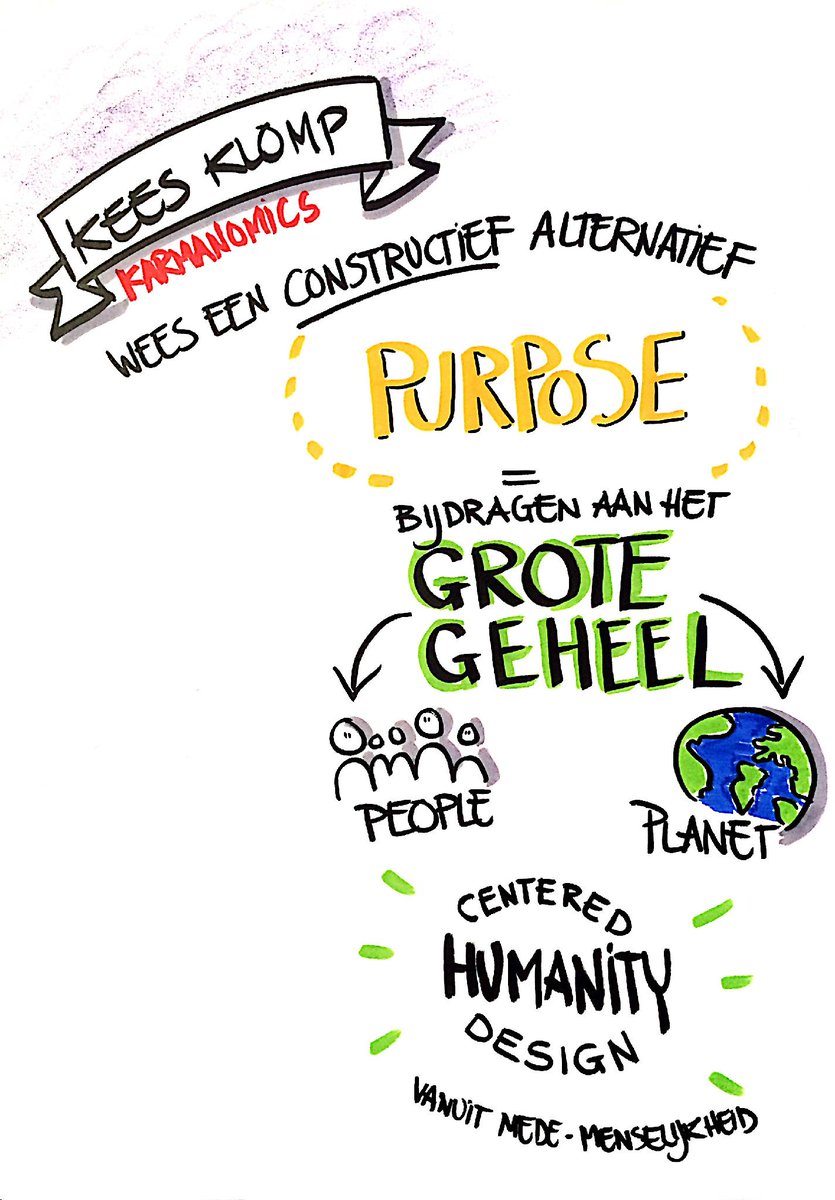 KEES KLOMP
KARMANOMICS
WEES EEN CONSTRUCTIEF ALTERNATIEF
PURPOSE
=
BIJDRAGEN AAN HET
GROTE
GEHEEL
PEOPLE
PLANET
CENTERED
HUMANITY
DESIGN
VANUIT MEDE-MENSELIJKHEID